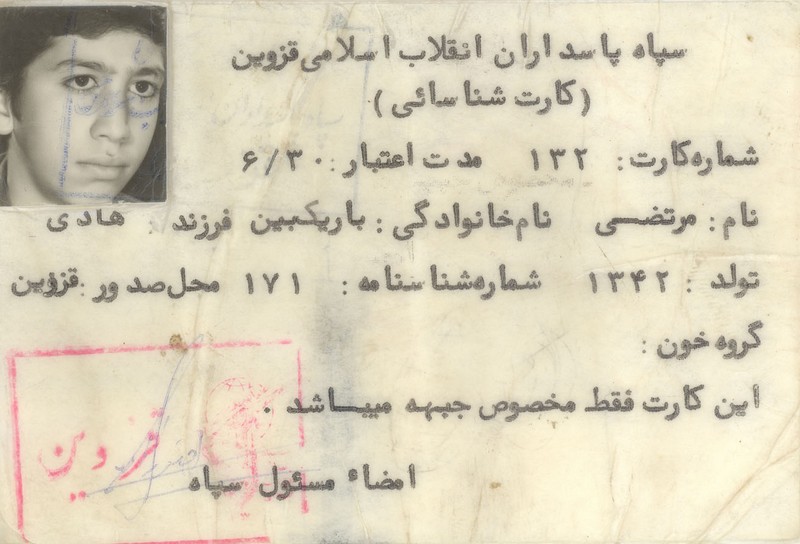 سپاه پاسداران انقلاب اسلامی قزوین
(کارت شناسائی)
شماره کارت: ۱۳۲ مدت اعتبار: ۶/۳۰
نام: مرتضی نام خانوادگی: باریکبین فرزند: هادی
تولد: ۱۳۴۲ شماره شناسنامه: ۱۷۱ محل صدور: قزوین
گروه خون:
این کارت فقط مخصوص جبهه میباشد.
قزوین
امضاء مسئول سپاه